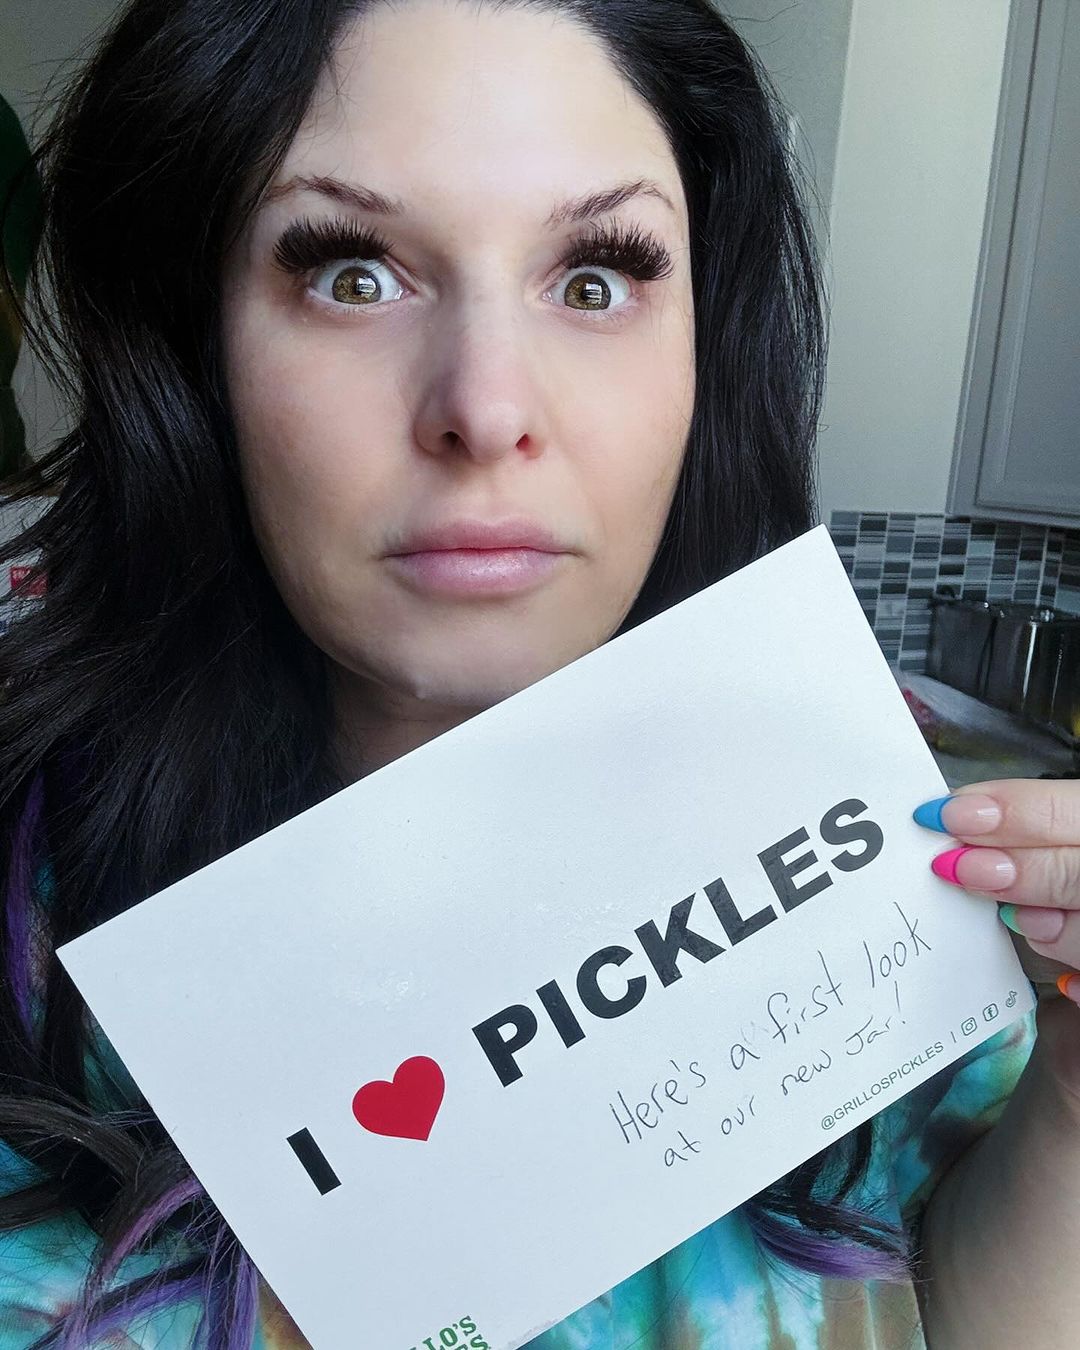 I ❤ PICKLES
Here's a first look
at our new Jar!
@GRILLOSPICKLES |
LLO'S
ES